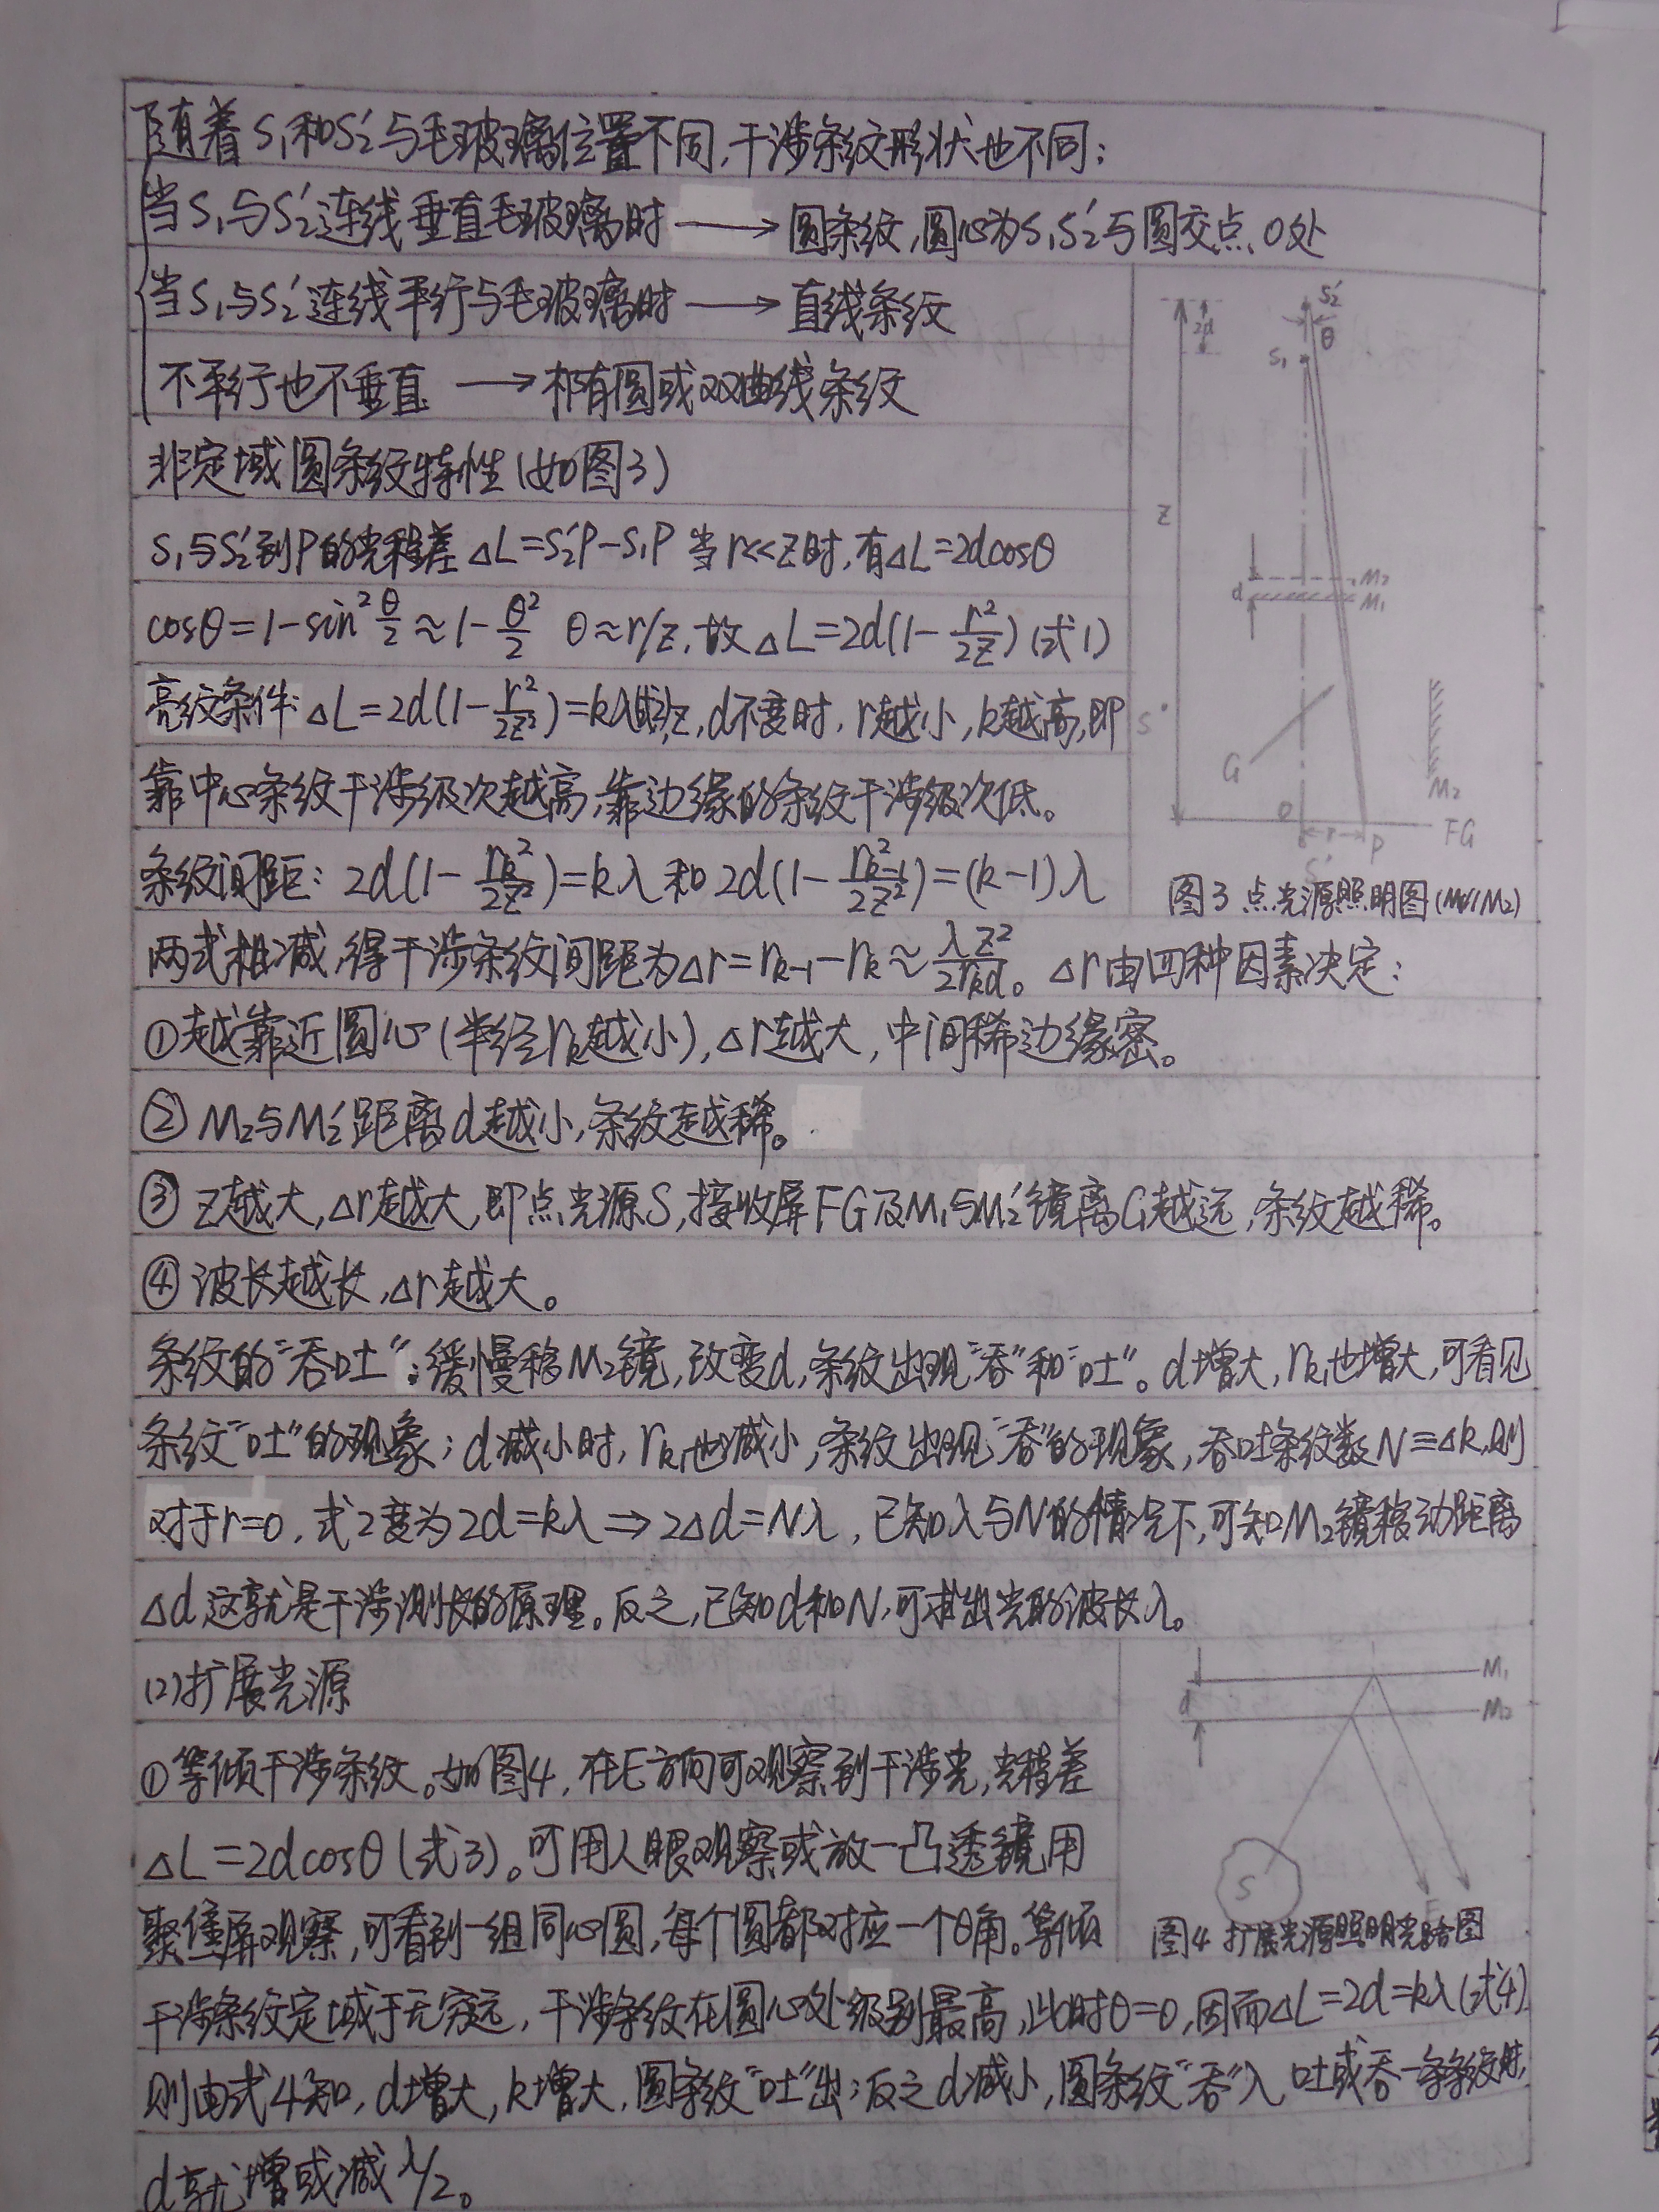 随着S₁和S₂′与毛玻璃位置不同,干涉条纹形状也不同:
当S₁与S₂′连线垂直毛玻璃时 ⟶ 圆条纹,圆心为S₁S₂′与圆交点O处
当S₁与S₂′连线平行与毛玻璃时 ⟶ 直线条纹
不平行也不垂直 ⟶ 椭圆或双曲线条纹
非定域圆条纹特性(如图3)
S₁与S₂′到P的光程差 ΔL=S₂′P-S₁P 当r<<z时,有ΔL=2dcosθ
cosθ=1-sin²θ/2≈1-θ²/2 θ≈r/z,故ΔL=2d(1-r²/2z)(式1)
亮纹条件:ΔL=2d(1-r²/2z²)=kλ z,d不变时,r越小,k越高,即
靠中心条纹干涉级次越高,靠边缘的条纹干涉级次低。
条纹间距:2d(1-r_k²/2z²)=kλ和2d(1-r_{k-1}²/2z²)=(k-1)λ
两式相减,得干涉条纹间距为Δr=r_{k-1}-r_k≈λz²/2r_kd。Δr由四种因素决定:
①越靠近圆心(半径r_k越小),Δr越大,中间稀边缘密。
②M₂与M₂′距离d越小,条纹越稀。
③z越大,Δr越大,即点光源S,接收屏FG及M₁与M₂′镜离G越远,条纹越稀。
④波长越长,Δr越大。
条纹的“吞吐”:缓慢移M₂镜,改变d,条纹出现“吞”和“吐”。d增大,r_k也增大,可看见
条纹“吐”的现象;d减小时,r_k也减小,条纹出现“吞”的现象,吞吐条纹数N=Δk,则
对于r=0,式2变为2d=kλ⇒2Δd=Nλ,已知λ与N的情况下,可知M₂镜移动距离
Δd,这就是干涉测长的原理。反之,已知d和N,可求出光的波长λ。
(2)扩展光源
①等倾干涉条纹。如图4,在E方向可观察到干涉光,光程差
ΔL=2dcosθ(式3)。可用人眼观察或放一凸透镜用
聚焦屏观察,可看到一组同心圆,每个圆都对应一个θ角。等倾
干涉条纹定域于无穷远,干涉条纹在圆心处级别最高,此时θ=0,因而ΔL=2d=kλ(式4)
则由式4知,d增大,k增大,圆条纹“吐”出;反之d减小,圆条纹“吞”入,吐或吞一条条纹时,
d就增或减λ/2。
S₂′
2d
θ
S₁
z
M₂
d
M₁
S
G
M₂
O
r
P
FG
S′
图3 点光源照明图(M₁//M₂)
M₁
d
M₂
S
E
图4 扩展光源照明光路图